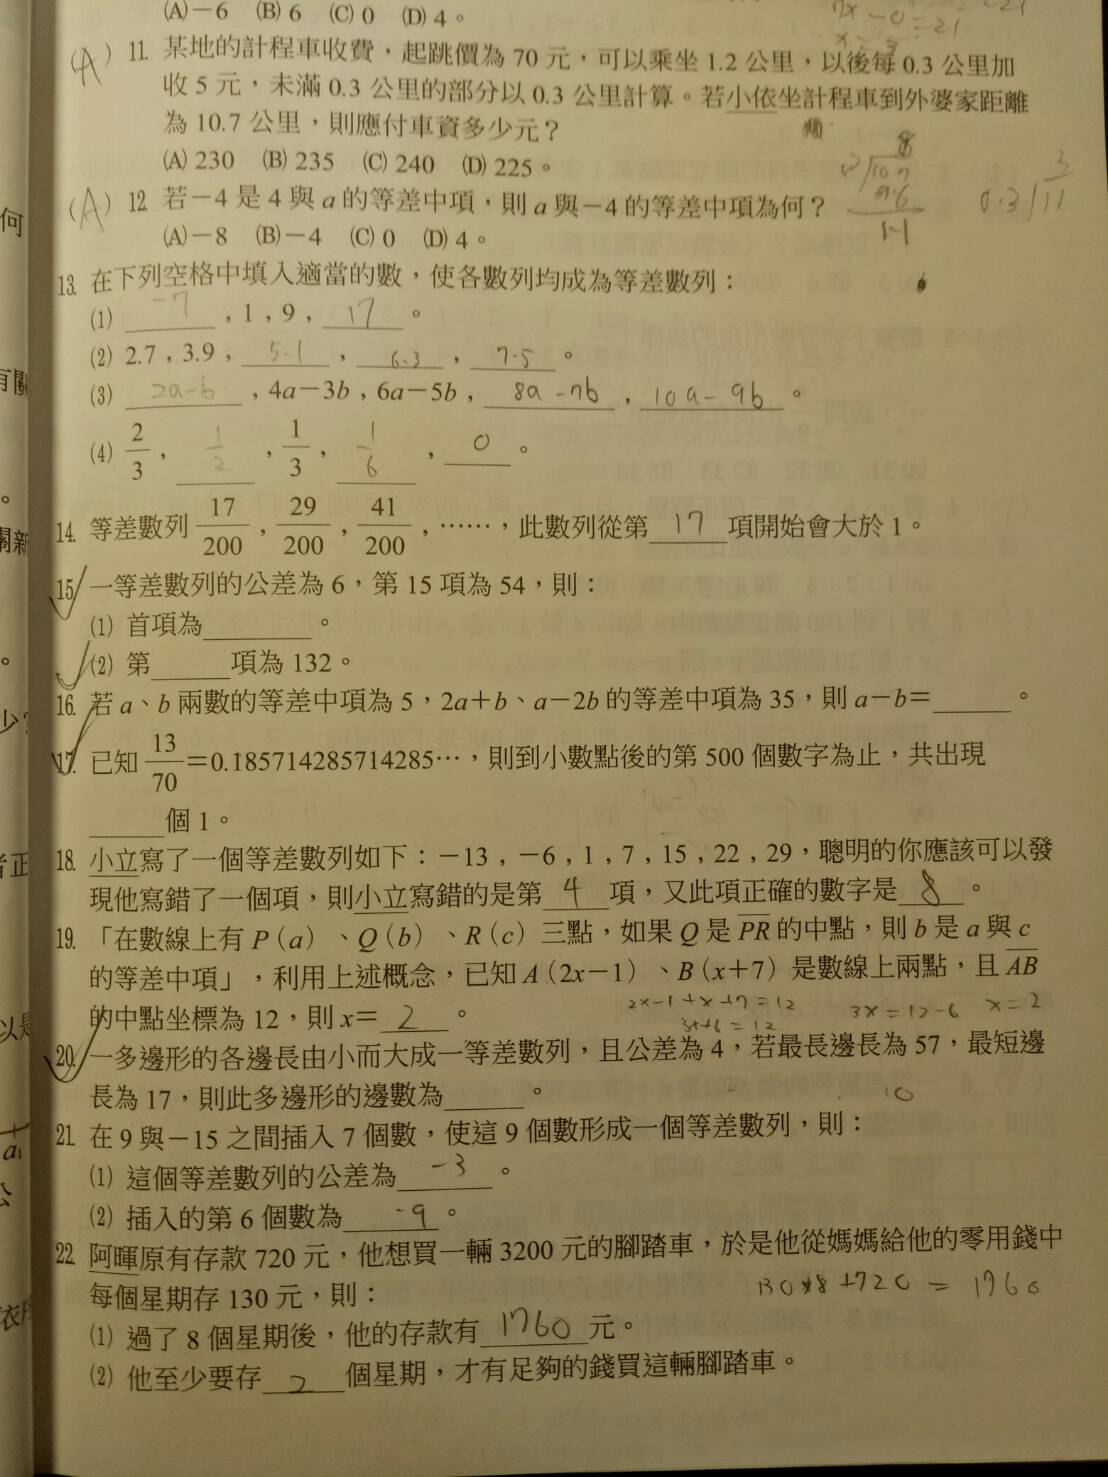 (A)－6 (B) 6 (C) 0 (D) 4。
(A) 11. 某地的計程車收費，起跳價為 70 元，可以乘坐 1.2 公里，以後每 0.3 公里加
收 5 元，未滿 0.3 公里的部分以 0.3 公里計算。若小依坐計程車到外婆家距離
為 10.7 公里，則應付車資多少元？
(A) 230 (B) 235 (C) 240 (D) 225。
(A) 12. 若－4 是 4 與 a 的等差中項，則 a 與－4 的等差中項為何？
(A)－8 (B)－4 (C) 0 (D) 4。
13. 在下列空格中填入適當的數，使各數列均成為等差數列：
(1) -7，1，9，17。
(2) 2.7，3.9，5.1，6.3，7.5。
(3) 2a-b，4a－3b，6a－5b，8a-7b，10a-9b。
(4) 2/3，1/2，1/3，1/6，0。
14. 等差數列 17/200，29/200，41/200，……，此數列從第17項開始會大於 1。
15. 一等差數列的公差為 6，第 15 項為 54，則：
(1) 首項為______。
(2) 第______項為 132。
16. 若 a、b 兩數的等差中項為 5，2a＋b、a－2b 的等差中項為 35，則 a－b＝______。
17. 已知 13/70＝0.185714285714285…，則到小數點後的第 500 個數字為止，共出現
______個 1。
18. 小立寫了一個等差數列如下：－13，－6，1，7，15，22，29，聰明的你應該可以發
現他寫錯了一個項，則小立寫錯的是第4項，又此項正確的數字是8。
19. 「在數線上有 P（a）、Q（b）、R（c）三點，如果 Q 是 PR 的中點，則 b 是 a 與 c
的等差中項」，利用上述概念，已知 A（2x－1）、B（x＋7）是數線上兩點，且 AB
的中點坐標為 12，則 x＝2。
2x-1+x+7=12
3x+6=12
3x=12-6
x=2
20. 一多邊形的各邊長由小而大成一等差數列，且公差為 4，若最長邊長為 57，最短邊
長為 17，則此多邊形的邊數為______。
10
21. 在 9 與－15 之間插入 7 個數，使這 9 個數形成一個等差數列，則：
(1) 這個等差數列的公差為-3。
(2) 插入的第 6 個數為-9。
22. 阿暉原有存款 720 元，他想買一輛 3200 元的腳踏車，於是他從媽媽給他的零用錢中
每個星期存 130 元，則：
130×8+720=1760
(1) 過了 8 個星期後，他的存款有1760元。
(2) 他至少要存2個星期，才有足夠的錢買這輛腳踏車。